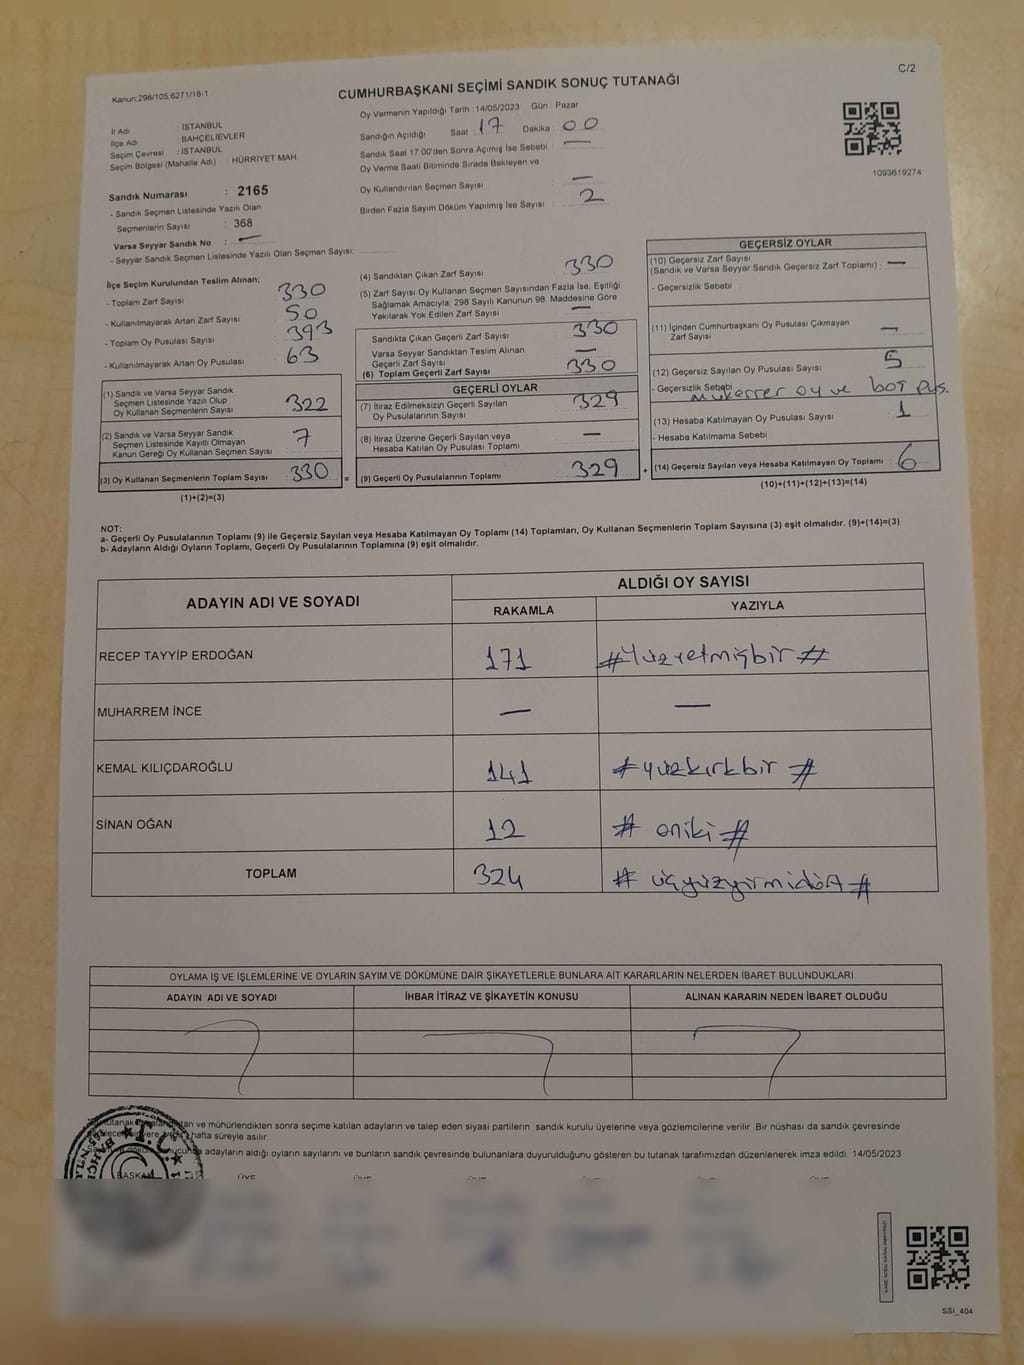 C/2
Kanun:298/105,6271/18-1
CUMHURBAŞKANI SEÇİMİ SANDIK SONUÇ TUTANAĞI
İl Adı : İSTANBUL
İlçe Adı : BAHÇELİEVLER
Seçim Çevresi : İSTANBUL
Seçim Bölgesi (Mahalle Adı) : HÜRRİYET MAH.
Sandık Numarası : 2165
- Sandık Seçmen Listesinde Yazılı Olan
Seçmenlerin Sayısı : 368
Varsa Seyyar Sandık No : —
- Seyyar Sandık Seçmen Listesinde Yazılı Olan Seçmen Sayısı:
Oy Vermenin Yapıldığı Tarih : 14/05/2023 Gün : Pazar
Sandığın Açıldığı Saat : 17 Dakika : 00
Sandık Saat 17:00'den Sonra Açılmış İse Sebebi : —
Oy Verme Saati Bitiminde Sırada Bekleyen ve
Oy Kullandırılan Seçmen Sayısı : —
Birden Fazla Sayım Döküm Yapılmış İse Sayısı : 2
1093619274
İlçe Seçim Kurulundan Teslim Alınan;
- Toplam Zarf Sayısı : 330
- Kullanılmayarak Artan Zarf Sayısı : 50
- Toplam Oy Pusulası Sayısı : 393
- Kullanılmayarak Artan Oy Pusulası : 63
(1) Sandık ve Varsa Seyyar Sandık
Seçmen Listesinde Yazılı Olup
Oy Kullanan Seçmenlerin Sayısı : 322
(2) Sandık ve Varsa Seyyar Sandık
Seçmen Listesinde Kayıtlı Olmayan
Kanun Gereği Oy Kullanan Seçmen Sayısı : 7
(3) Oy Kullanan Seçmenlerin Toplam Sayısı : 330
(1)+(2)=(3)
(4) Sandıktan Çıkan Zarf Sayısı : 330
(5) Zarf Sayısı Oy Kullanan Seçmen Sayısından Fazla İse, Eşitliği
Sağlamak Amacıyla, 298 Sayılı Kanunun 98. Maddesine Göre
Yakılarak Yok Edilen Zarf Sayısı : —
Sandıkta Çıkan Geçerli Zarf Sayısı : 330
Varsa Seyyar Sandıktan Teslim Alınan
Geçerli Zarf Sayısı : —
(6) Toplam Geçerli Zarf Sayısı : 330
GEÇERLİ OYLAR
(7) İtiraz Edilmeksizin Geçerli Sayılan
Oy Pusulalarının Sayısı : 329
(8) İtiraz Üzerine Geçerli Sayılan veya
Hesaba Katılan Oy Pusulası Toplamı : —
= (9) Geçerli Oy Pusulalarının Toplamı : 329 +
GEÇERSİZ OYLAR
(10) Geçersiz Zarf Sayısı
(Sandık ve Varsa Seyyar Sandık Geçersiz Zarf Toplamı) : —
- Geçersizlik Sebebi
(11) İçinden Cumhurbaşkanı Oy Pusulası Çıkmayan
Zarf Sayısı : —
(12) Geçersiz Sayılan Oy Pusulası Sayısı : 5
- Geçersizlik Sebebi mükerrer oy ve boş pus.
(13) Hesaba Katılmayan Oy Pusulası Sayısı : 1
- Hesaba Katılmama Sebebi
(14) Geçersiz Sayılan veya Hesaba Katılmayan Oy Toplamı : 6
(10)+(11)+(12)+(13)=(14)
NOT:
a- Geçerli Oy Pusulalarının Toplamı (9) ile Geçersiz Sayılan veya Hesaba Katılmayan Oy Toplamı (14) Toplamları, Oy Kullanan Seçmenlerin Toplam Sayısına (3) eşit olmalıdır. (9)+(14)=(3)
b- Adayların Aldığı Oyların Toplamı, Geçerli Oy Pusulalarının Toplamına (9) eşit olmalıdır.
ADAYIN ADI VE SOYADI ALDIĞI OY SAYISI
RAKAMLA YAZIYLA
RECEP TAYYİP ERDOĞAN 171 #Yüzyetmişbir#
MUHARREM İNCE — —
KEMAL KILIÇDAROĞLU 141 #yüzkırkbir#
SİNAN OĞAN 12 # oniki #
TOPLAM 324 # üçyüzyirmidört #
OYLAMA İŞ VE İŞLEMLERİNE VE OYLARIN SAYIM VE DÖKÜMÜNE DAİR ŞİKAYETLERLE BUNLARA AİT KARARLARIN NELERDEN İBARET BULUNDUKLARI
ADAYIN ADI VE SOYADI İHBAR İTİRAZ VE ŞİKAYETİN KONUSU ALINAN KARARIN NEDEN İBARET OLDUĞU
ve mühürlendikten sonra seçime katılan adayların ve talep eden siyasi partilerin sandık kurulu üyelerine veya gözlemcilerine verilir. Bir nüshası da sandık çevresinde
hafta süreyle asılır.
adayların aldığı oyların sayılarını ve bunların sandık çevresinde bulunanlara duyurulduğunu gösteren bu tutanak tarafımızdan düzenlenerek imza edildi. 14/05/2023
T.C.
BAŞKAN
SSİ_404